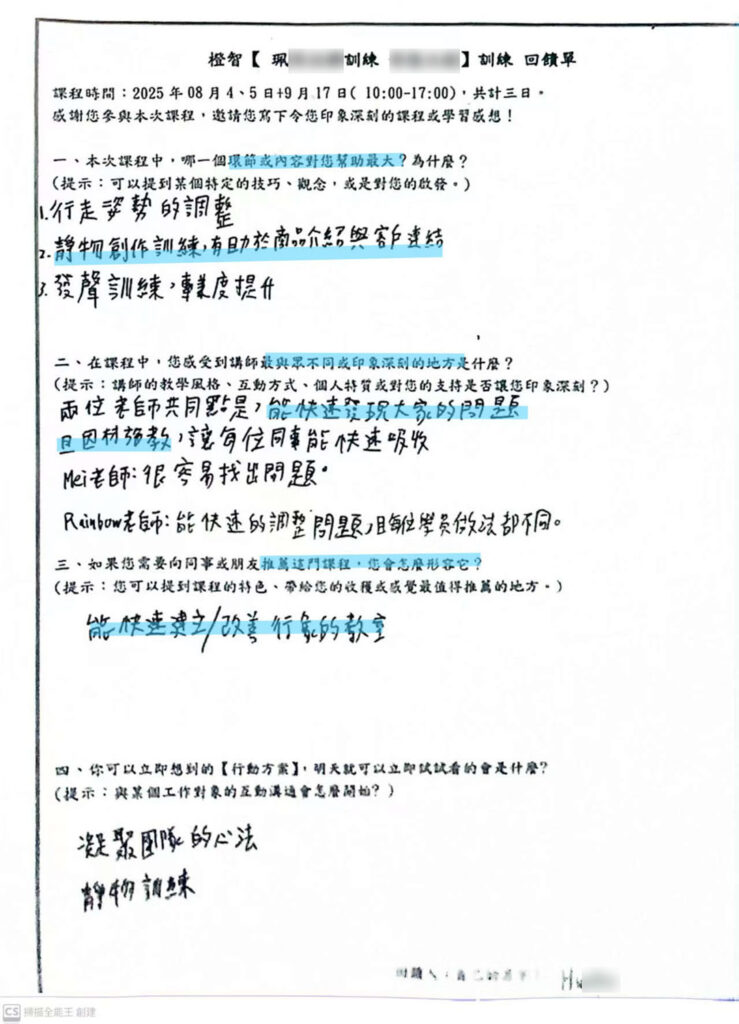 橙智【 珮 訓練 】訓練 回饋單
課程時間：2025 年 08 月 4、5 日+9 月 17 日( 10:00-17:00)，共計三日。
感謝您參與本次課程，邀請您寫下令您印象深刻的課程或學習感想！
一、本次課程中，哪一個環節或內容對您幫助最大？為什麼？
(提示：可以提到某個特定的技巧、觀念，或是對您的啟發。)
1. 行走姿勢的調整
2. 靜物創作訓練，有助於商品介紹與客戶連結
3. 發聲訓練，專業度提升
二、在課程中，您感受到講師最與眾不同或印象深刻的地方是什麼？
(提示：講師的教學風格、互動方式、個人特質或對您的支持是否讓您印象深刻？)
兩位老師共同點是，能快速發現大家的問題
且因材施教，讓每位同事能快速吸收
Mei老師：很容易找出問題。
Rainbow老師：能快速的調整問題，且每位學員做法都不同。
三、如果您需要向同事或朋友推薦這門課程，您會怎麼形容它？
(提示：您可以提到課程的特色、帶給您的收穫或感覺最值得推薦的地方。)
能快速建立/改善行象的教室
四、你可以立即想到的【行動方案】，明天就可以立即試試看的會是什麼?
(提示：與某個工作對象的互動溝通會怎麼開始？)
凝聚團隊的心法
靜物訓練
回饋人：
CS 掃描全能王 創建